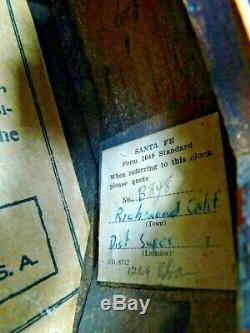 SANTA FE
Form 1649 Standard
When referring to this clock
please quote
No. B848
Richmond Calif
(Town)
Dist Super
(Location)
S.D. 8712
1264
he
S. A.